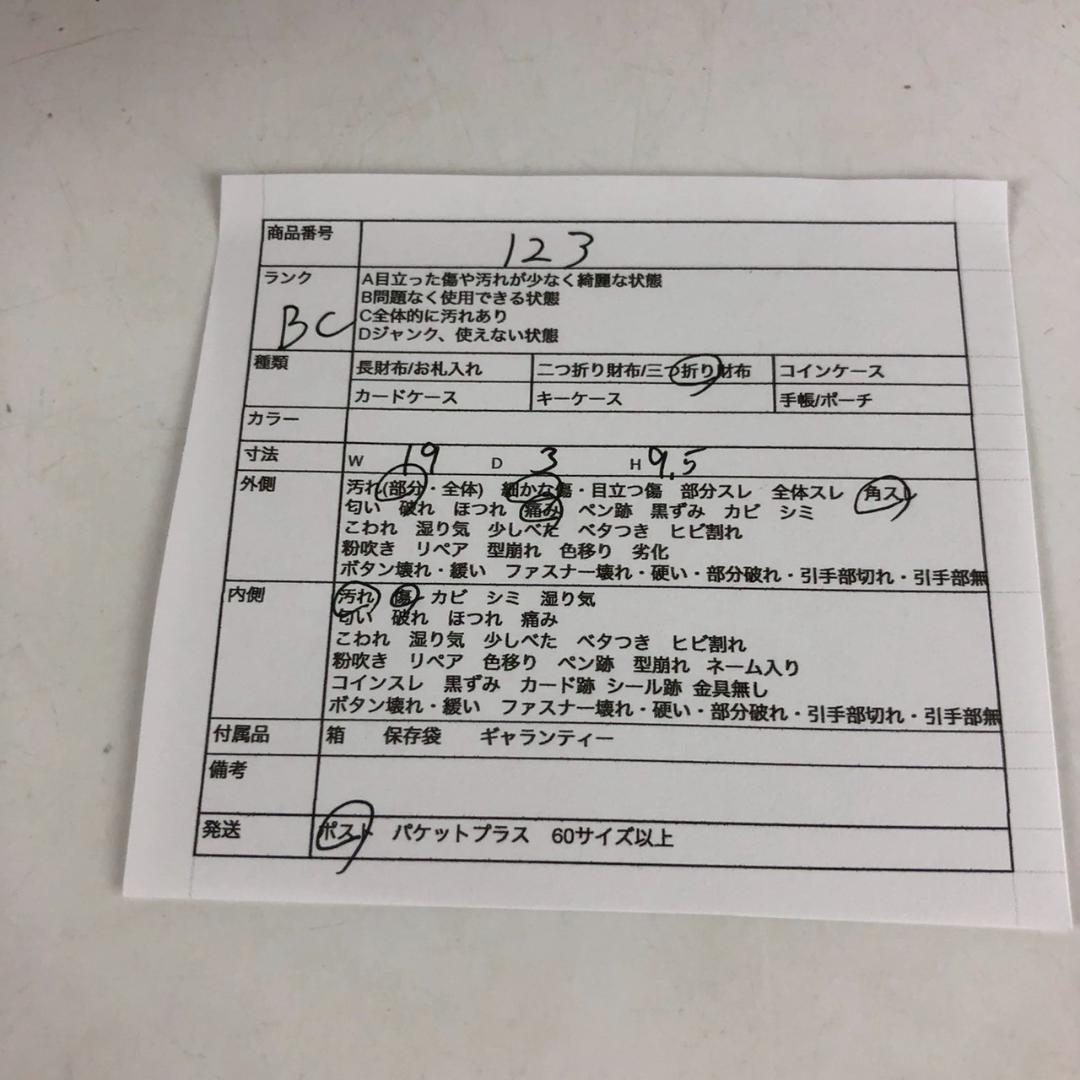 商品番号 123
ランク BC
A目立った傷や汚れが少なく綺麗な状態
B問題なく使用できる状態
C全体的に汚れあり
Dジャンク、使えない状態
種類 長財布/お札入れ 二つ折り財布/三つ折り財布 コインケース
カードケース キーケース 手帳/ポーチ
カラー
寸法 W 19 D 3 H 9.5
外側 汚れ(部分・全体) 細かな傷・目立つ傷 部分スレ 全体スレ 角スレ
匂い 破れ ほつれ 痛み ペン跡 黒ずみ カビ シミ
こわれ 湿り気 少しべた ベタつき ヒビ割れ
粉吹き リペア 型崩れ 色移り 劣化
ボタン壊れ・緩い ファスナー壊れ・硬い・部分破れ・引手部切れ・引手部無
内側 汚れ 傷 カビ シミ 湿り気
匂い 破れ ほつれ 痛み
こわれ 湿り気 少しべた ベタつき ヒビ割れ
粉吹き リペア 色移り ペン跡 型崩れ ネーム入り
コインスレ 黒ずみ カード跡 シール跡 金具無し
ボタン壊れ・緩い ファスナー壊れ・硬い・部分破れ・引手部切れ・引手部無
付属品 箱 保存袋 ギャランティー
備考
発送 ポスト パケットプラス 60サイズ以上